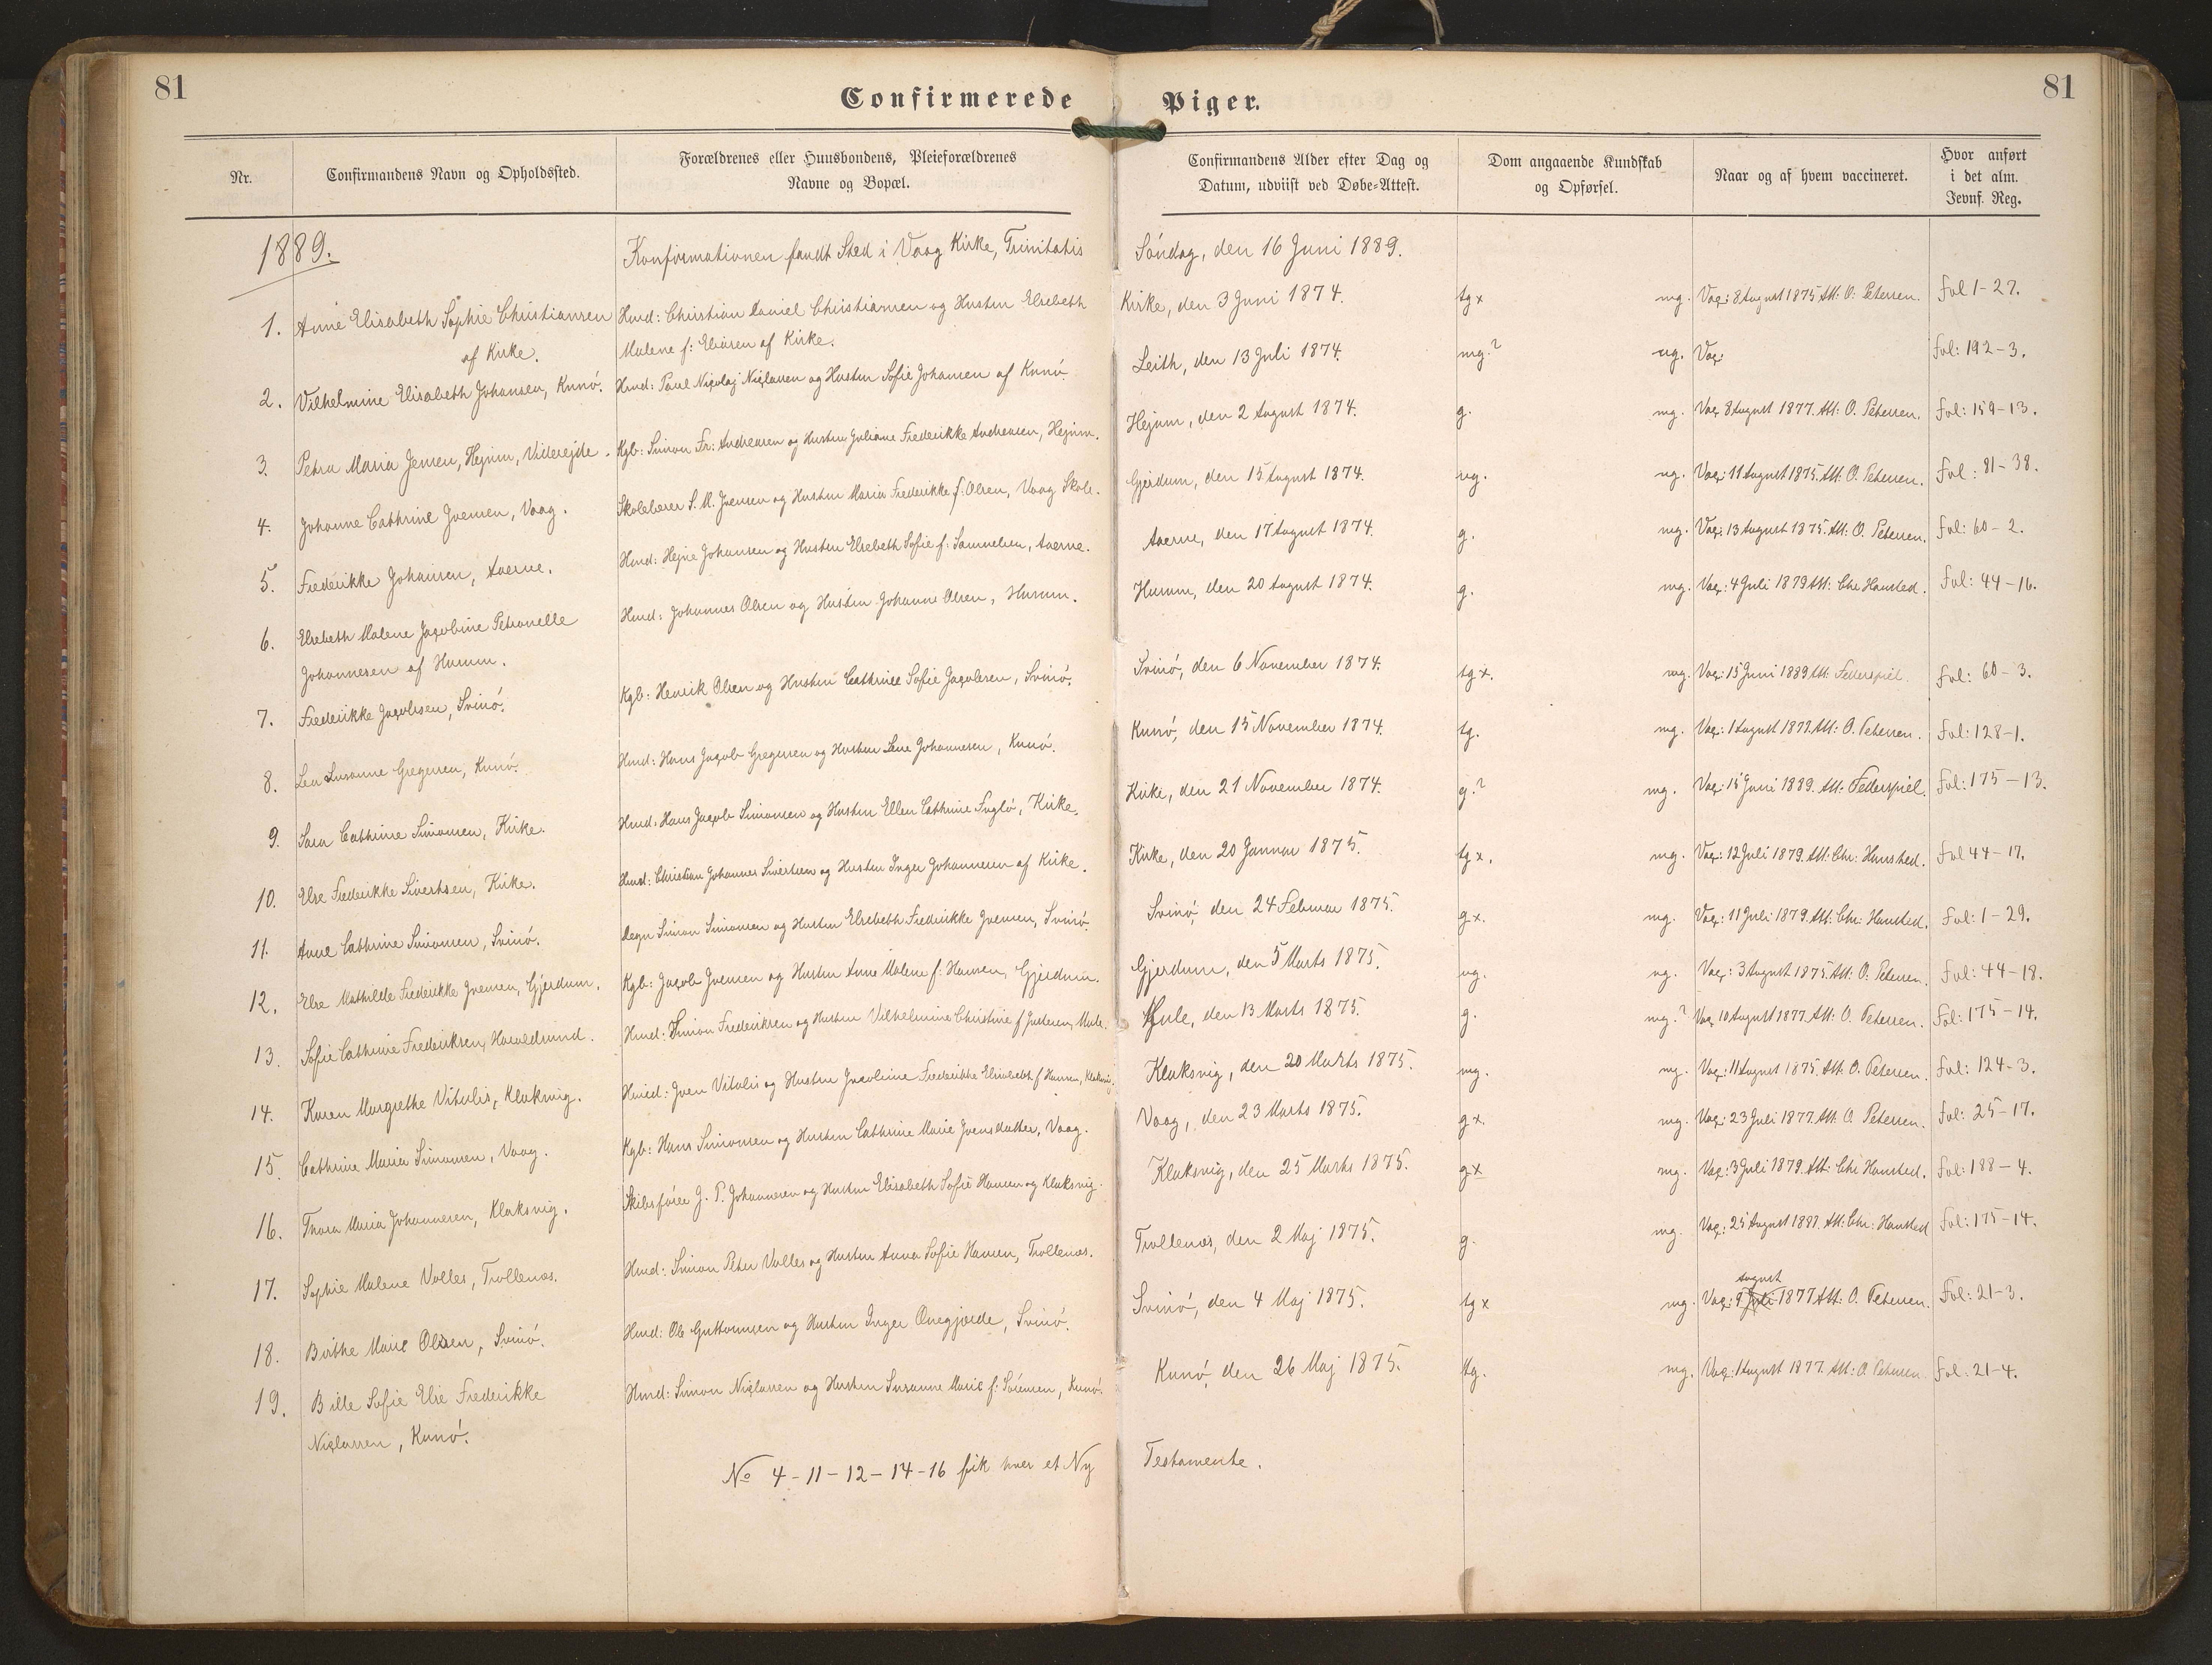 81
Confirmerede Piger.
81
Nr.
Confirmandens Navn og Opholdssted.
Forældrenes eller Huusbondens, Pleieforældrenes
Navne og Bopæl.
Confirmandens Alder efter Dag og
Datum, udviist ved Døbe=Attest.
Dom angaaende Kundskab
og Opførsel.
Naar og af hvem vaccineret.
Hvor anført
i det alm.
Jevnf. Reg.
1889.
Konfirmationen fandt Sted i Vaag Kirke, Trinitatis Søndag, den 16 Juni 1889.
1. Anne Elisabeth Sophie Christiansen Hmd: Christian Daniel Christiansen og Hustru Elsebeth Kirke, den 3 Juni 1874. tg x mg. Vac: 8 August 1875 Att: O. Petersen. Fol 1-27.
af Kirke. Malene f: Eliasen af Kirke.
2. Vilhelmine Elisabeth Johansen, Kunø. Hmd: Paul Nicolaj Niclassen og Hustru Sofie Johansen af Kunø. Leith, den 13 Juli 1874. mg.? ug. Vac: Fol: 192-3.
3. Petra Maria Jensen, Hejnum, Viderejde. Kgb: Simon Fr: Andreasen og Hustru Juliane Frederikke Andreasen, Hejnum. Hejnum, den 2 August 1874. g. mg. Vac. 8 August 1877. Att: O. Petersen. Fol: 159-13.
4. Johanne Cathrine Joensen, Vaag. Skolelærer S. M. Joensen og Hustru Maria Frederikke f: Olsen, Vaag Skole. Gjerdum, den 15 August 1874. ug. ug. Vac: 11 August 1875. Att: O. Petersen. Fol: 81-38.
5. Frederikke Johansen, Aaerne. Hmd: Hejne Johansen og Hustru Elsebeth Sofie f: Samuelsen, Aaerne. Aaerne, den 17 August 1874. g. mg. Vac: 13 August 1875. Att: O. Petersen. Fol: 60-2.
6. Elsebeth Malene Jacobine Petronelle Hmd: Johannes Olsen og Hustru Johanne Olsen, Husum. Husum, den 20 August 1874. g. mg. Vac: 4 Juli 1879 Att: Chr Hansted. Fol: 44-16.
Johannesen af Husum.
7. Frederikke Jacobsen, Svinø. Kgb: Henrik Olsen og Hustru Cathrine Sofie Jacobsen, Svinø. Svinø, den 6 November 1874. tg x. mg. Vac: 15 Juni 1889 Att: Federspiel. Fol: 60-3.
8. Lea Susanne Gregersen, Kunø. Hmd: Hans Jacob Gregersen og Hustru Lene Johannesen, Kunø. Kunø, den 15 November 1874. tg. mg. Vac: 1 August 1877. Att: O. Petersen. Fol: 128-1.
9. Sara Cathrine Simonsen, Kirke. Hmd: Hans Jacob Simonsen og Hustru Ellen Cathrine Fuglø, Kirke. Kirke, den 21 November 1874. g.? mg. Vac: 15 Juni 1889. Att: Federspiel. Fol: 175-13.
10. Else Frederikke Sivertsen, Kirke. Hmd: Christian Johannes Sivertsen og Hustru Inger Johannesen af Kirke. Kirke, den 20 Januar 1875. tg x. mg. Vac: 12 Juli 1879. Att: Chr: Hansted. Fol 44-17.
11. Anne Cathrine Simonsen, Svinø. Degn Simon Simonsen og Hustru Elsebeth Frederikke Joensen, Svinø. Svinø den 24 Februar 1875. g x. mg. Vac: 11 Juli 1879. Att: Chr: Hansted. Fol: 1-29.
12. Else Mathilde Frederikke Joensen, Gjerdum. Kgb: Jacob Joensen og Hustru Anne Malene f: Hansen, Gjerdum. Gjerdum, den 5 Marts 1875. ug. ug. Vac: 3 August 1875. Att: O. Petersen. Fol: 44-18.
13. Sofie Cathrine Frederiksen, Haraldsund. Hmd: Simon Frederiksen og Hustru Vilhelmine Christine f Justesen, Mule. Mule, den 13 Marts 1875. g. mg.? Vac 10 August 1877 Att: O. Petersen. Fol: 175-14.
14. Karen Margrethe Vitalis, Klaksvig. Hmd: Joen Vitalis og Hustru Jacobine Frederikke Elisabeth f Hansen, Klaksvig. Klaksvig, den 20 Marts 1875. mg. mg. Vac: 11 August 1875. Att: O. Petersen. Fol: 124-3.
15. Cathrine Maria Simonsen, Vaag. Kgb: Hans Simonsen og Hustru Cathrine Marie Joensdatter, Vaag. Vaag, den 23 Marts 1875. g x. mg. Vac: 23 Juli 1877. Att: O. Petersen. Fol: 25-17.
16. Thora Maria Johannesen, Klaksvig. Skibsfører J. P. Johannesen og Hustru Elisabeth Sofie Hansen og Klaksvig. Klaksvig, den 25 Marts 1875. g x mg. Vac: 3 Juli 1879. Att: Chr Hansted. Fol: 188-4.
17. Sophie Malene Valles, Trøllenæs. Hmd: Simon Peter Valles og Hustru Anna Sofie Hansen, Trøllenæs. Trøllenæs, den 2 Maj 1875. g. mg. Vac: 25 August 1881. Att: Chr: Hansted Fol: 175-14.
18. Birthe Marie Olsen, Svinø. Hmd: Ole Guttormsen og Hustru Inger Quegjærde, Svinø. Svinø, den 4 Maj 1875. tg x mg. Vac: 9 Juli August 1877 Att: O. Petersen. Fol: 21-3.
19. Bille Sofie Else Frederikke Hmd: Simon Niclassen og Hustru Susanne Marie f: Sørensen, Kunø. Kunø, den 26 Maj 1875. tg. mg. Vac: 1 August 1877. Att: O. Petersen Fol: 21-4.
Niclassen, Kunø.
No 4-11-12-14-16 fik hver et Ny Testamente.